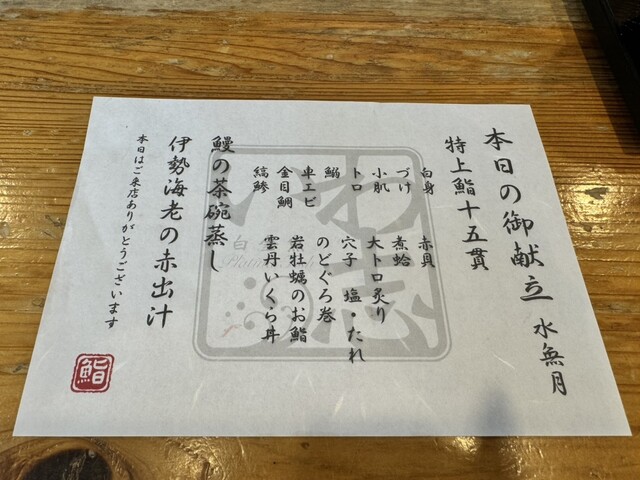 本日の御献立 水無月
特上鮨十五貫
白身 赤貝
づけ 煮蛤
小肌 大トロ炙り
トロ 穴子 塩・たれ
鰯 のどぐろ巻
車エビ 岩牡蠣のお鮨
金目鯛 雲丹いくら丼
縞鯵
鰻の茶碗蒸し
伊勢海老の赤出汁
本日はご来店ありがとうございます
鮨